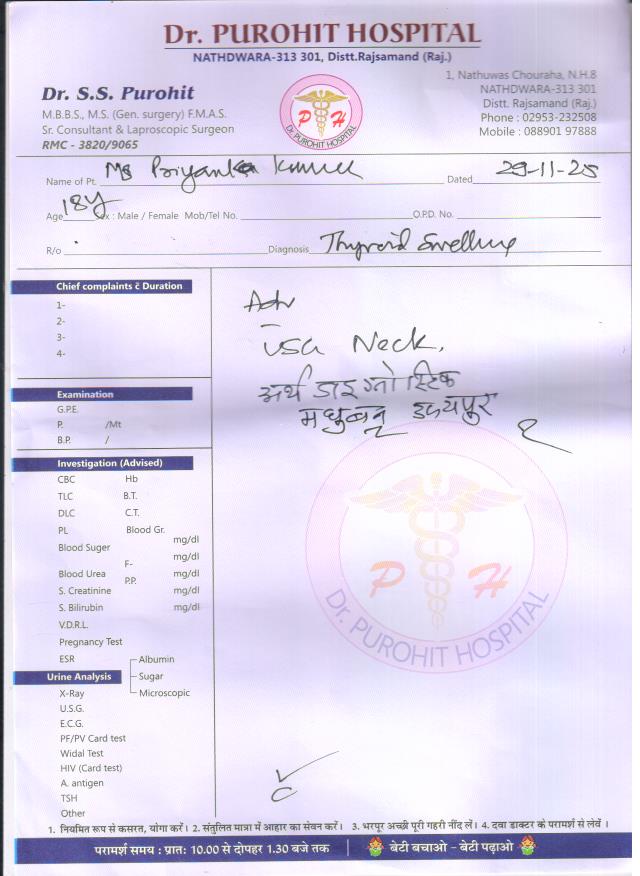 Dr. PUROHIT HOSPITAL
NATHDWARA-313 301, Distt.Rajsamand (Raj.)
Dr. S.S. Purohit
M.B.B.S., M.S. (Gen. surgery) F.M.A.S.
Sr. Consultant & Laproscopic Surgeon
RMC - 3820/9065
P H
Dr. PUROHIT HOSPITAL
1, Nathuwas Chouraha, N.H.8
NATHDWARA-313 301
Distt. Rajsamand (Raj.)
Phone : 02953-232508
Mobile : 088901 97888
Name of Pt. Ms Priyanka Dated 29-11-25
Age 18y Sex : Male / Female Mob/Tel No. O.P.D. No.
R/o Diagnosis Thyroid Swelling
Chief complaints c̄ Duration
1-
2-
3-
4-
Examination
G.P.E.
P. /Mt
B.P. /
Investigation (Advised)
CBC Hb
TLC B.T.
DLC C.T.
PL Blood Gr.
Blood Suger mg/dl
F- mg/dl
Blood Urea P.P. mg/dl
S. Creatinine mg/dl
S. Bilirubin mg/dl
V.D.R.L.
Pregnancy Test
ESR Albumin
Urine Analysis Sugar
X-Ray Microscopic
U.S.G.
E.C.G.
PF/PV Card test
Widal Test
HIV (Card test)
A. antigen
TSH
Other
Adv
USG Neck.
अर्थ डाइग्नोस्टिक
मधुबन उदयपुर
P H
Dr. PUROHIT HOSPITAL
1. नियमित रूप से कसरत, योगा करें। 2. संतुलित मात्रा में आहार का सेवन करें। 3. भरपूर अच्छी पूरी गहरी नींद लें। 4. दवा डाक्टर के परामर्श से लेवें ।
परामर्श समय : प्रातः 10.00 से दोपहर 1.30 बजे तक बेटी बचाओ - बेटी पढ़ाओ